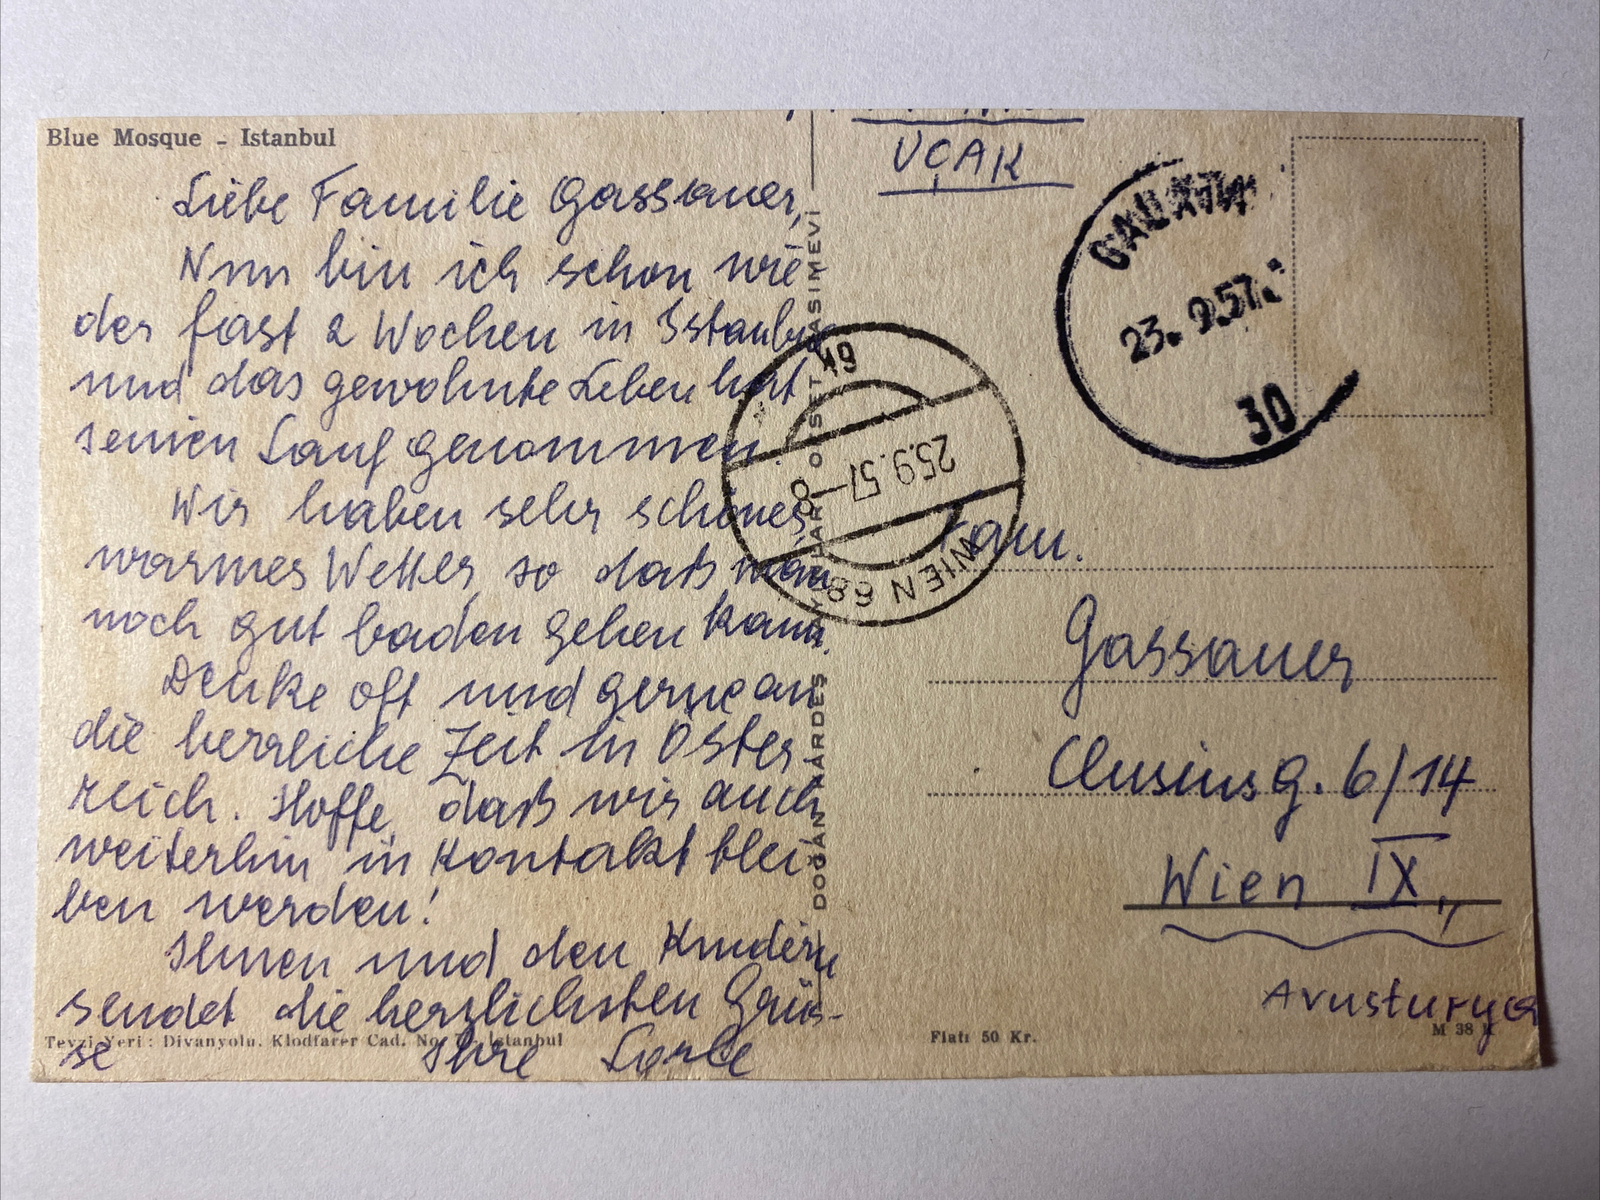 Blue Mosque - Istanbul
Liebe Familie Gassauer,
Nun bin ich schon wie-
der fast 2 Wochen in Istanbul
und das gewohnte Leben hat
seinen Lauf genommen.
Wir haben sehr schönes
warmes Wetter, so daß man
noch gut baden gehen kann.
Denke oft und gerne an
die herrliche Zeit in Öster-
reich. Hoffe, daß wir auch
weiterhin in Kontakt blei-
ben werden!
Ihnen und den Kindern
sendet die herzlichsten Grüs-
se Ihre
Tevzi Yeri: Divanyolu, Klodfarer Cad. No. Istanbul
DOĞAN KARDEŞ OFSET BASIMEVİ
UÇAK
GALATA
23. 9.57
30
19
25.9.57-8
WIEN 68
Fam.
Gassauer
Clusiusg. 6/14
Wien IX.,
Avusturya
Fiatı 50 Kr.
M 38